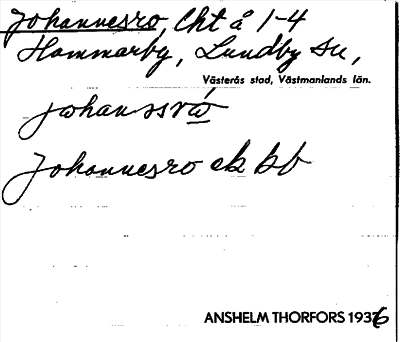 Johannesro, lht å 1-4
Hammarby, Lundby sn,
Västerås stad, Västmanlands län.
johanssrω
Johannesro ek kb
ANSHELM THORFORS 1936